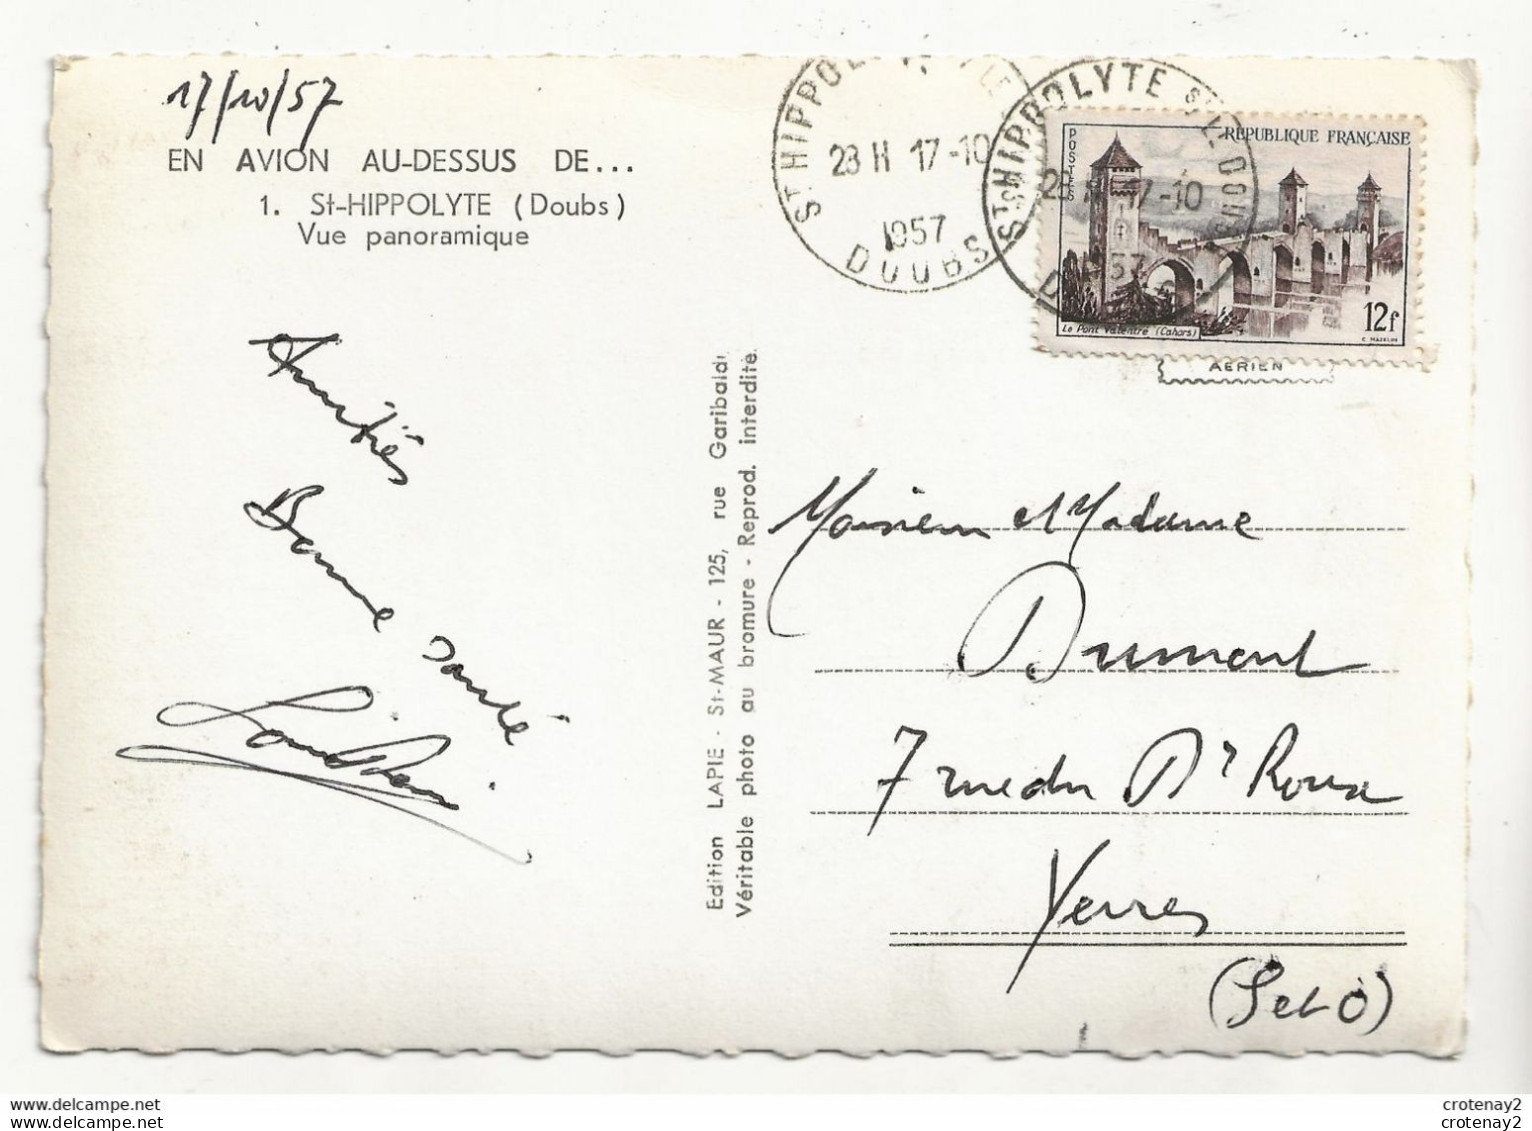 17/10/57
EN AVION AU-DESSUS DE...
1. St-HIPPOLYTE (Doubs)
Vue panoramique
Amitiés
Bonne santé
Edition LAPIE - St-MAUR - 125, rue Garibaldi
Véritable photo au bromure - Reprod. interdite.
ST HIPPOL
28 H 17-10
1957
DOUBS
ST HIPPOLYTE
17-10
POSTES
REPUBLIQUE FRANÇAISE
Le Pont Valentré (Cahors)
12f
C. MAZELIN
AERIEN
Monsieur et Madame
Dumont
7 rue du Dr Roux
Yerres
(S et O)
crotenay2
crotenay2